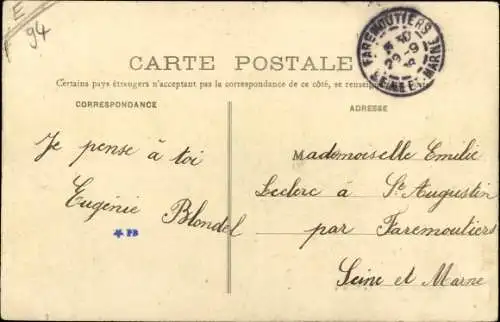 E
94
FAREMOUTIERS
SEINE ET MARNE
CARTE POSTALE
Certains pays étrangers n'acceptant pas la correspondance de ce côté, se
CORRESPONDANCE
ADRESSE
Je pense à toi
Eugénie Blondel
Mademoiselle Emilie
Leclerc à St Augustin
par Faremoutiers
Seine et Marne